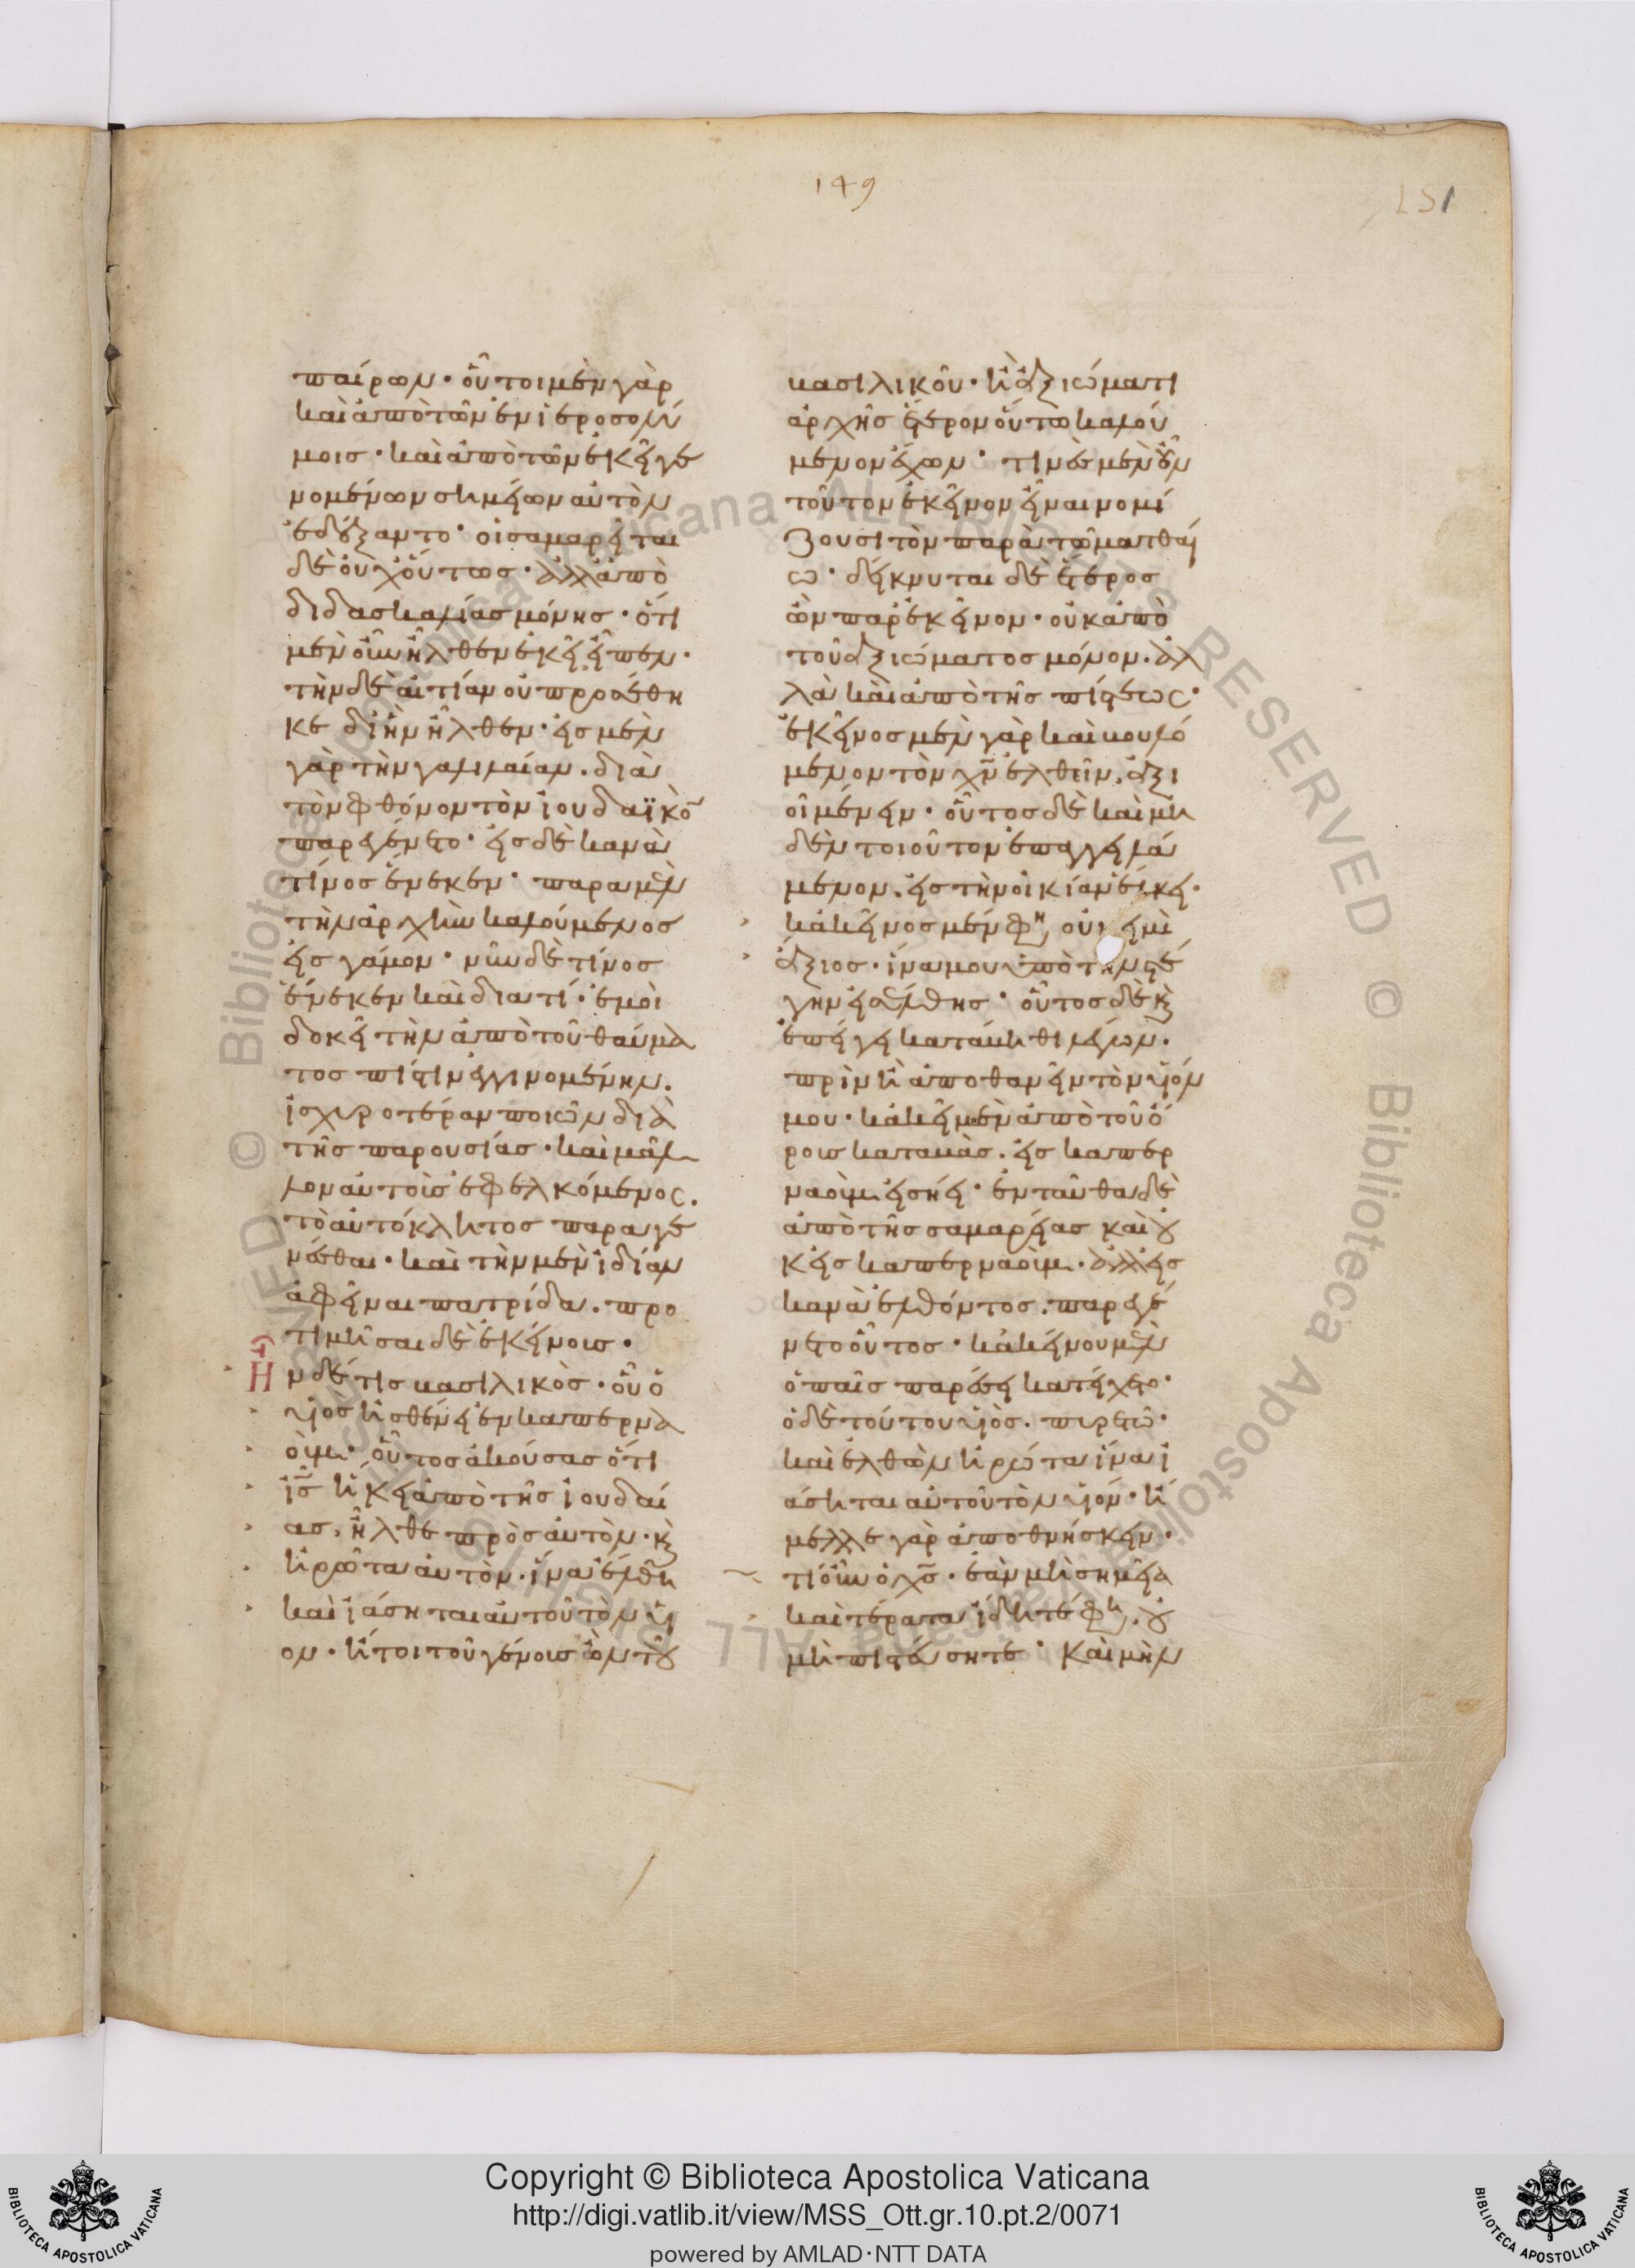 149
151
παίρων· οὗτοι μὲν γὰρ
καὶ ἀπὸ τῶν ἐν ἱεροσολύ
μοις· καὶ ἀπὸ τῶν ἐκεῖ γε
νομένων σημείων αὐτὸν
ἐδέξαντο· οἱ σαμαρεῖται
δὲ οὐχ οὕτως· ἀλλ' ἀπὸ
διδασκαλίας μόνης· ὅτι
μὲν οὖν ἦλθεν ἐκεῖ εἶπεν·
τὴν δὲ αἰτίαν οὐ προσέθη
κε δι' ἣν ἦλθεν· εἰς μὲν
γὰρ τὴν γαλιλαίαν. διὰ
τὸν φθόνον τὸν ἰουδαϊκὸ̅
παρεγένετο· εἰς δὲ κανὰ
τίνος ἕνεκεν· παρὰ μὲν
τὴν ἀρχὴν καλούμενος
εἰς γάμον· νῦν δὲ τίνος
ἕνεκεν καὶ διατί· ἐμοὶ
δοκεῖ τὴν ἀπὸ τοῦ θαύμα
τος πίστιν ἐγγινομένην.
ἰσχυροτέραν ποιῶν διὰ
τῆς παρουσίας· καὶ μᾶλ
λον αὐτοὺς ἐφελκόμενος.
τὸ αὐτόκλητος παραγε
νέσθαι· καὶ τὴν μὲν ἰδίαν
ἀφεῖναι πατρίδα. προ
τιμῆσαι δὲ ἐκείνοις·
Ην δέ τις βασιλικὸς· οὗ ὁ
υἱὸς ἠσθένει ἐν καπερνα
οὺμ· οὗτος ἀκούσας ὅτι
ἰς̅ ἥκει ἀπὸ τῆς ἰουδαί
ας, ἦλθε πρὸς αὐτὸν· κ̀
ἠρώτα αὐτὸν· ἵνα ἔλθη
καὶ ἰάσηται αὐτοῦ τὸν υἱ
ον· ἤτοι τοῦ γένους ὢν τοῦ
βασιλικοῦ· ἢ ἀξιώματι
ἀρχῆς ἕτερον οὕτω καλού
μενον ἔχων· τινὲς μὲν οὖν
τοῦτον ἐκεῖνον εἶναι νομί
ζουσι τὸν παρὰ τῶ ματθαί
ω· δείκνυται δὲ ἕτερος
ὢν παρ' ἐκεῖνον· οὐκ ἀπὸ
τοῦ ἀξιώματος μόνον. ἀλ
λὰ καὶ ἀπὸ τῆς πίστεως·
ἐκεῖνος μὲν γὰρ καὶ βουλό
μενον τὸν χν̅ ἐλθεῖν. ἀξι
οῖ μένειν· οὗτος δὲ καὶ μη
δὲν τοιοῦτον ἐπαγγειλά
μενον. εἰς τὴν οἰκίαν ἕλκει·
κἀκεῖνος μέν φη, οὐκ εἰμὶ
ἄξιος· ἵνα μου ὑπὸ τὴν στέ
γην εἰσέλθης· οὗτος δὲ κ̀
ἐπείγει κατάβηθι λέγων·
πρὶν ἢ ἀποθανεῖν τὸν υἱόν
μου· κἀκεῖ μὲν ἀπὸ τοῦ ὄ
ρους καταβὰς. εἰς καπερ
ναοὺμ εἰσήει· ἐνταῦθα δὲ
ἀπὸ τῆς σαμαρείας καὶ οὐ
κ εἰς καπερναοὺμ· ἀλλ' εἰς
κανὰ ἐλθόντος. παρεγέ
νετο οὗτος· κἀκείνου μὲν
ὁ παῖς παρέσει κατείχετο·
ὁ δὲ τούτου υἱὸς. πυρετῶ·
καὶ ἐλθὼν ἠρώτα ἵνα ἰ
άσηται αὐτοῦ τὸν υἱόν· ἤ
μελλε γὰρ ἀποθνήσκειν·
τί οὖν ὁ χς̅· ἐὰν μὴ σημεῖα
καὶ τέρατα ἴδητέ φη, οὐ
μὴ πιστεύσητε· Καὶ μὴν
Copyright © Biblioteca Apostolica Vaticana
http://digi.vatlib.it/view/MSS_Ott.gr.10.pt.2/0071
powered by AMLAD·NTT DATA
BIBLIOTECA APOSTOLICA VATICANA
BIBLIOTECA APOSTOLICA VATICANA